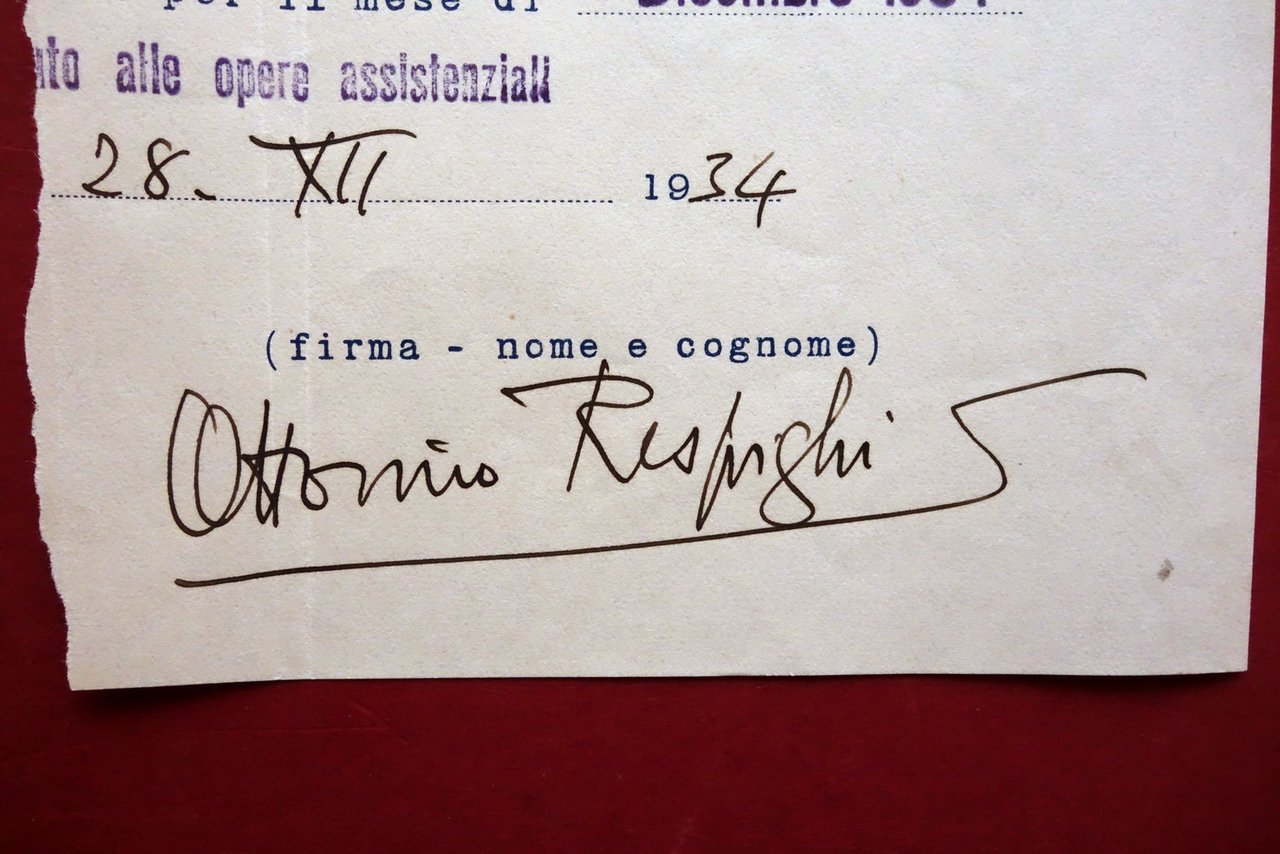 per il mese di Dicembre 1934
alle opere assistenziali
28. XII 1934
(firma - nome e cognome)
Ottorino Respighi